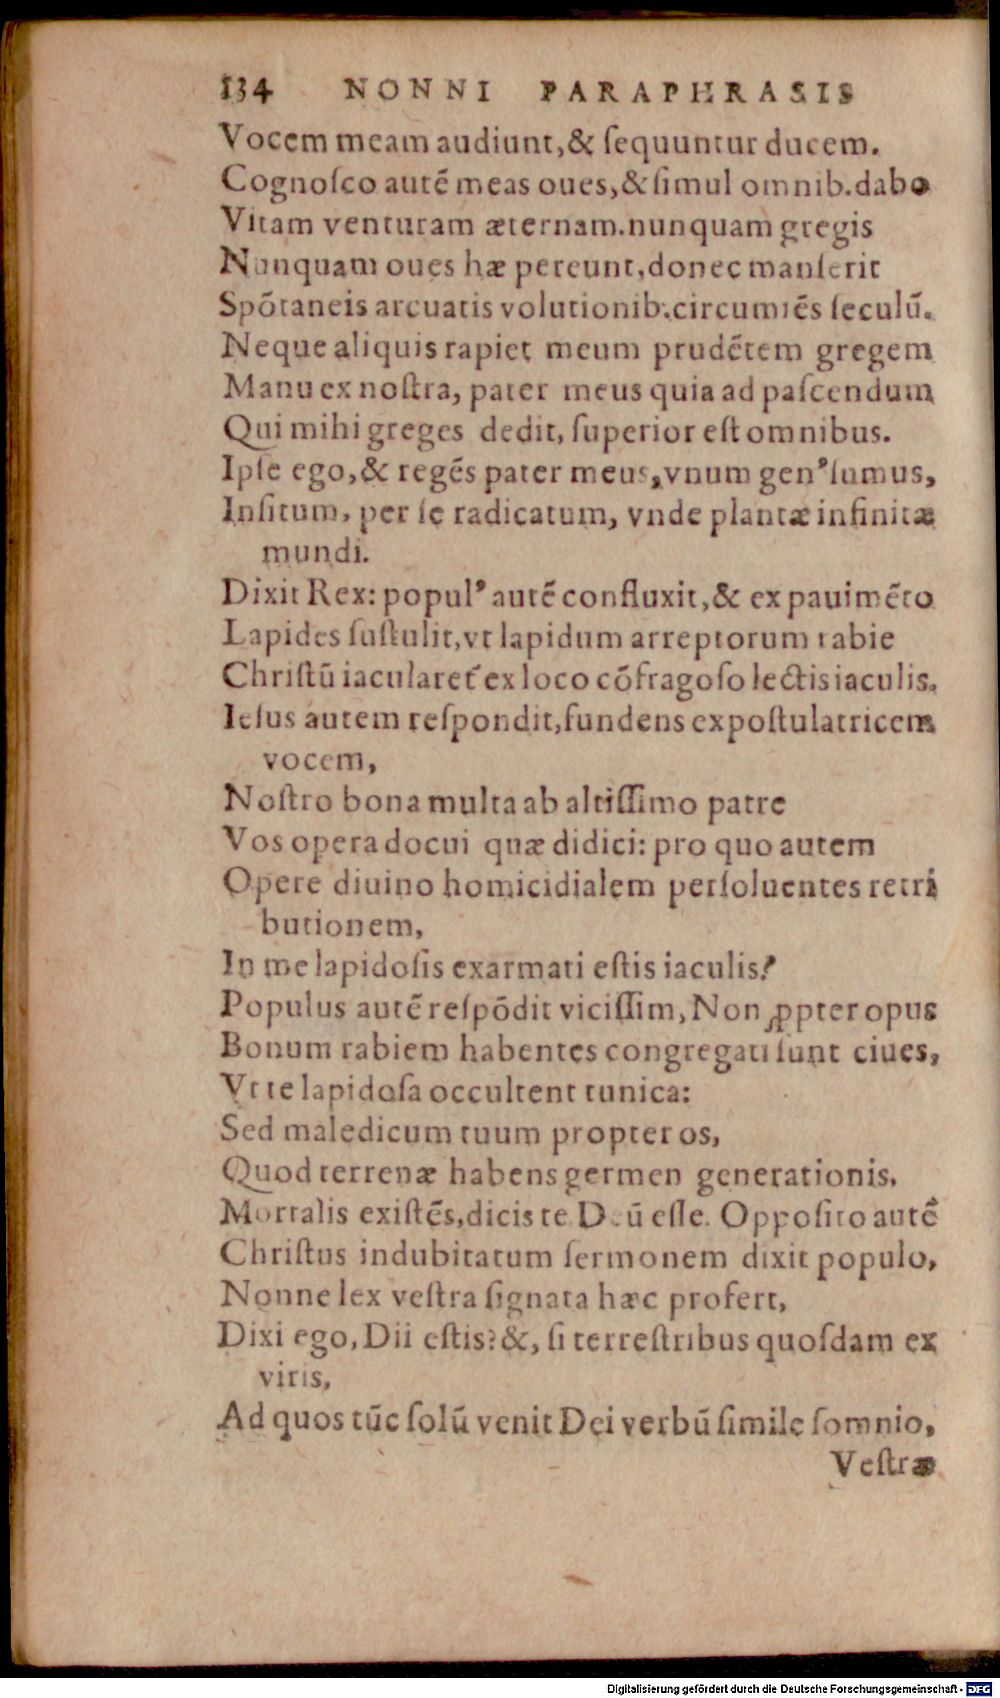 134 NONNI PARAPHRASIS
Vocem meam audiunt,& ſequuntur ducem.
Cognoſco autẽ meas oues,& ſimul omnib.dabo
Vitam venturam æternam.nunquam gregis
Nunquam oues hæ pereunt,donec manſerit
Spõtaneis arcuatis volutionib.circumiẽs ſeculũ.
Neque aliquis rapiet meum prudẽtem gregem
Manu ex noſtra, pater meus quia ad paſcendum
Qui mihi greges dedit, ſuperior eſt omnibus.
Ipſe ego,& regẽs pater meus,vnum genꝰ ſumus,
Inſitum, per ſe radicatum, vnde plantæ infinitæ
mundi.
Dixit Rex: populꝰ autẽ confluxit,& ex pauimẽto
Lapides ſuſtulit,vt lapidum arreptorum rabie
Chriſtũ iacularet᷑ ex loco cõfragoſo lectis iaculis.
Ieſus autem reſpondit,fundens expoſtulatricem
vocem,
Noſtro bona multa ab altiſſimo patre
Vos opera docui quæ didici: pro quo autem
Opere diuino homicidialem perſoluentes retri
butionem,
In me lapidoſis exarmati eſtis iaculis?
Populus autẽ reſpõdit viciſſim, Non ꝓpter opus
Bonum rabiem habentes congregati ſunt ciues,
Vt te lapidoſa occultent tunica:
Sed maledicum tuum propter os,
Quod terrenæ habens germen generationis,
Mortalis exiſtẽs,dicis te Deũ eſſe. Oppoſito autẽ
Chriſtus indubitatum ſermonem dixit populo,
Nonne lex veſtra ſignata hæc profert,
Dixi ego, Dii eſtis?&, ſi terreſtribus quoſdam ex
viris,
Ad quos tũc ſolũ venit Dei verbũ ſimile ſomnio,
Veſtræ
Digitalisierung gefördert durch die Deutsche Forschungsgemeinschaft - DFG